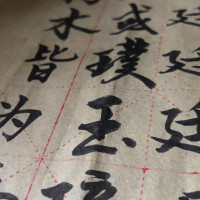 廷廷廷
或璞玉
木皆
为